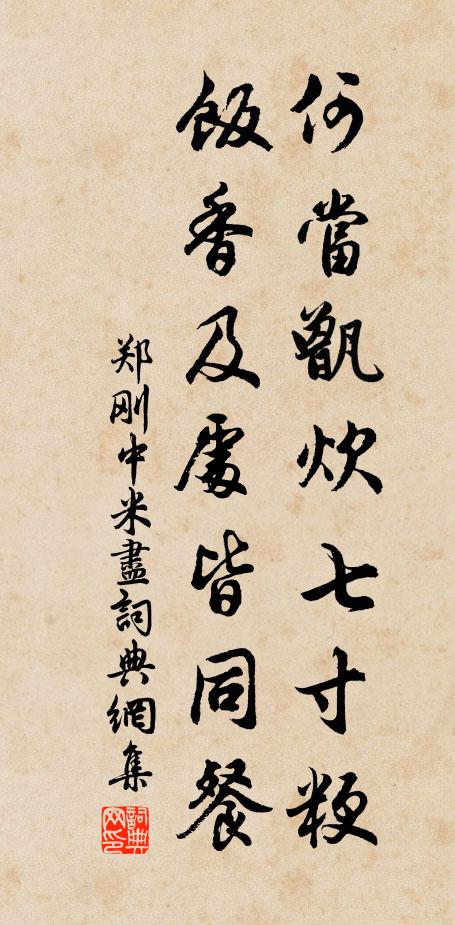 何當甑炊七寸粳
飯香及處皆同餐
郑刚中米盡詞典網集
詞典網印